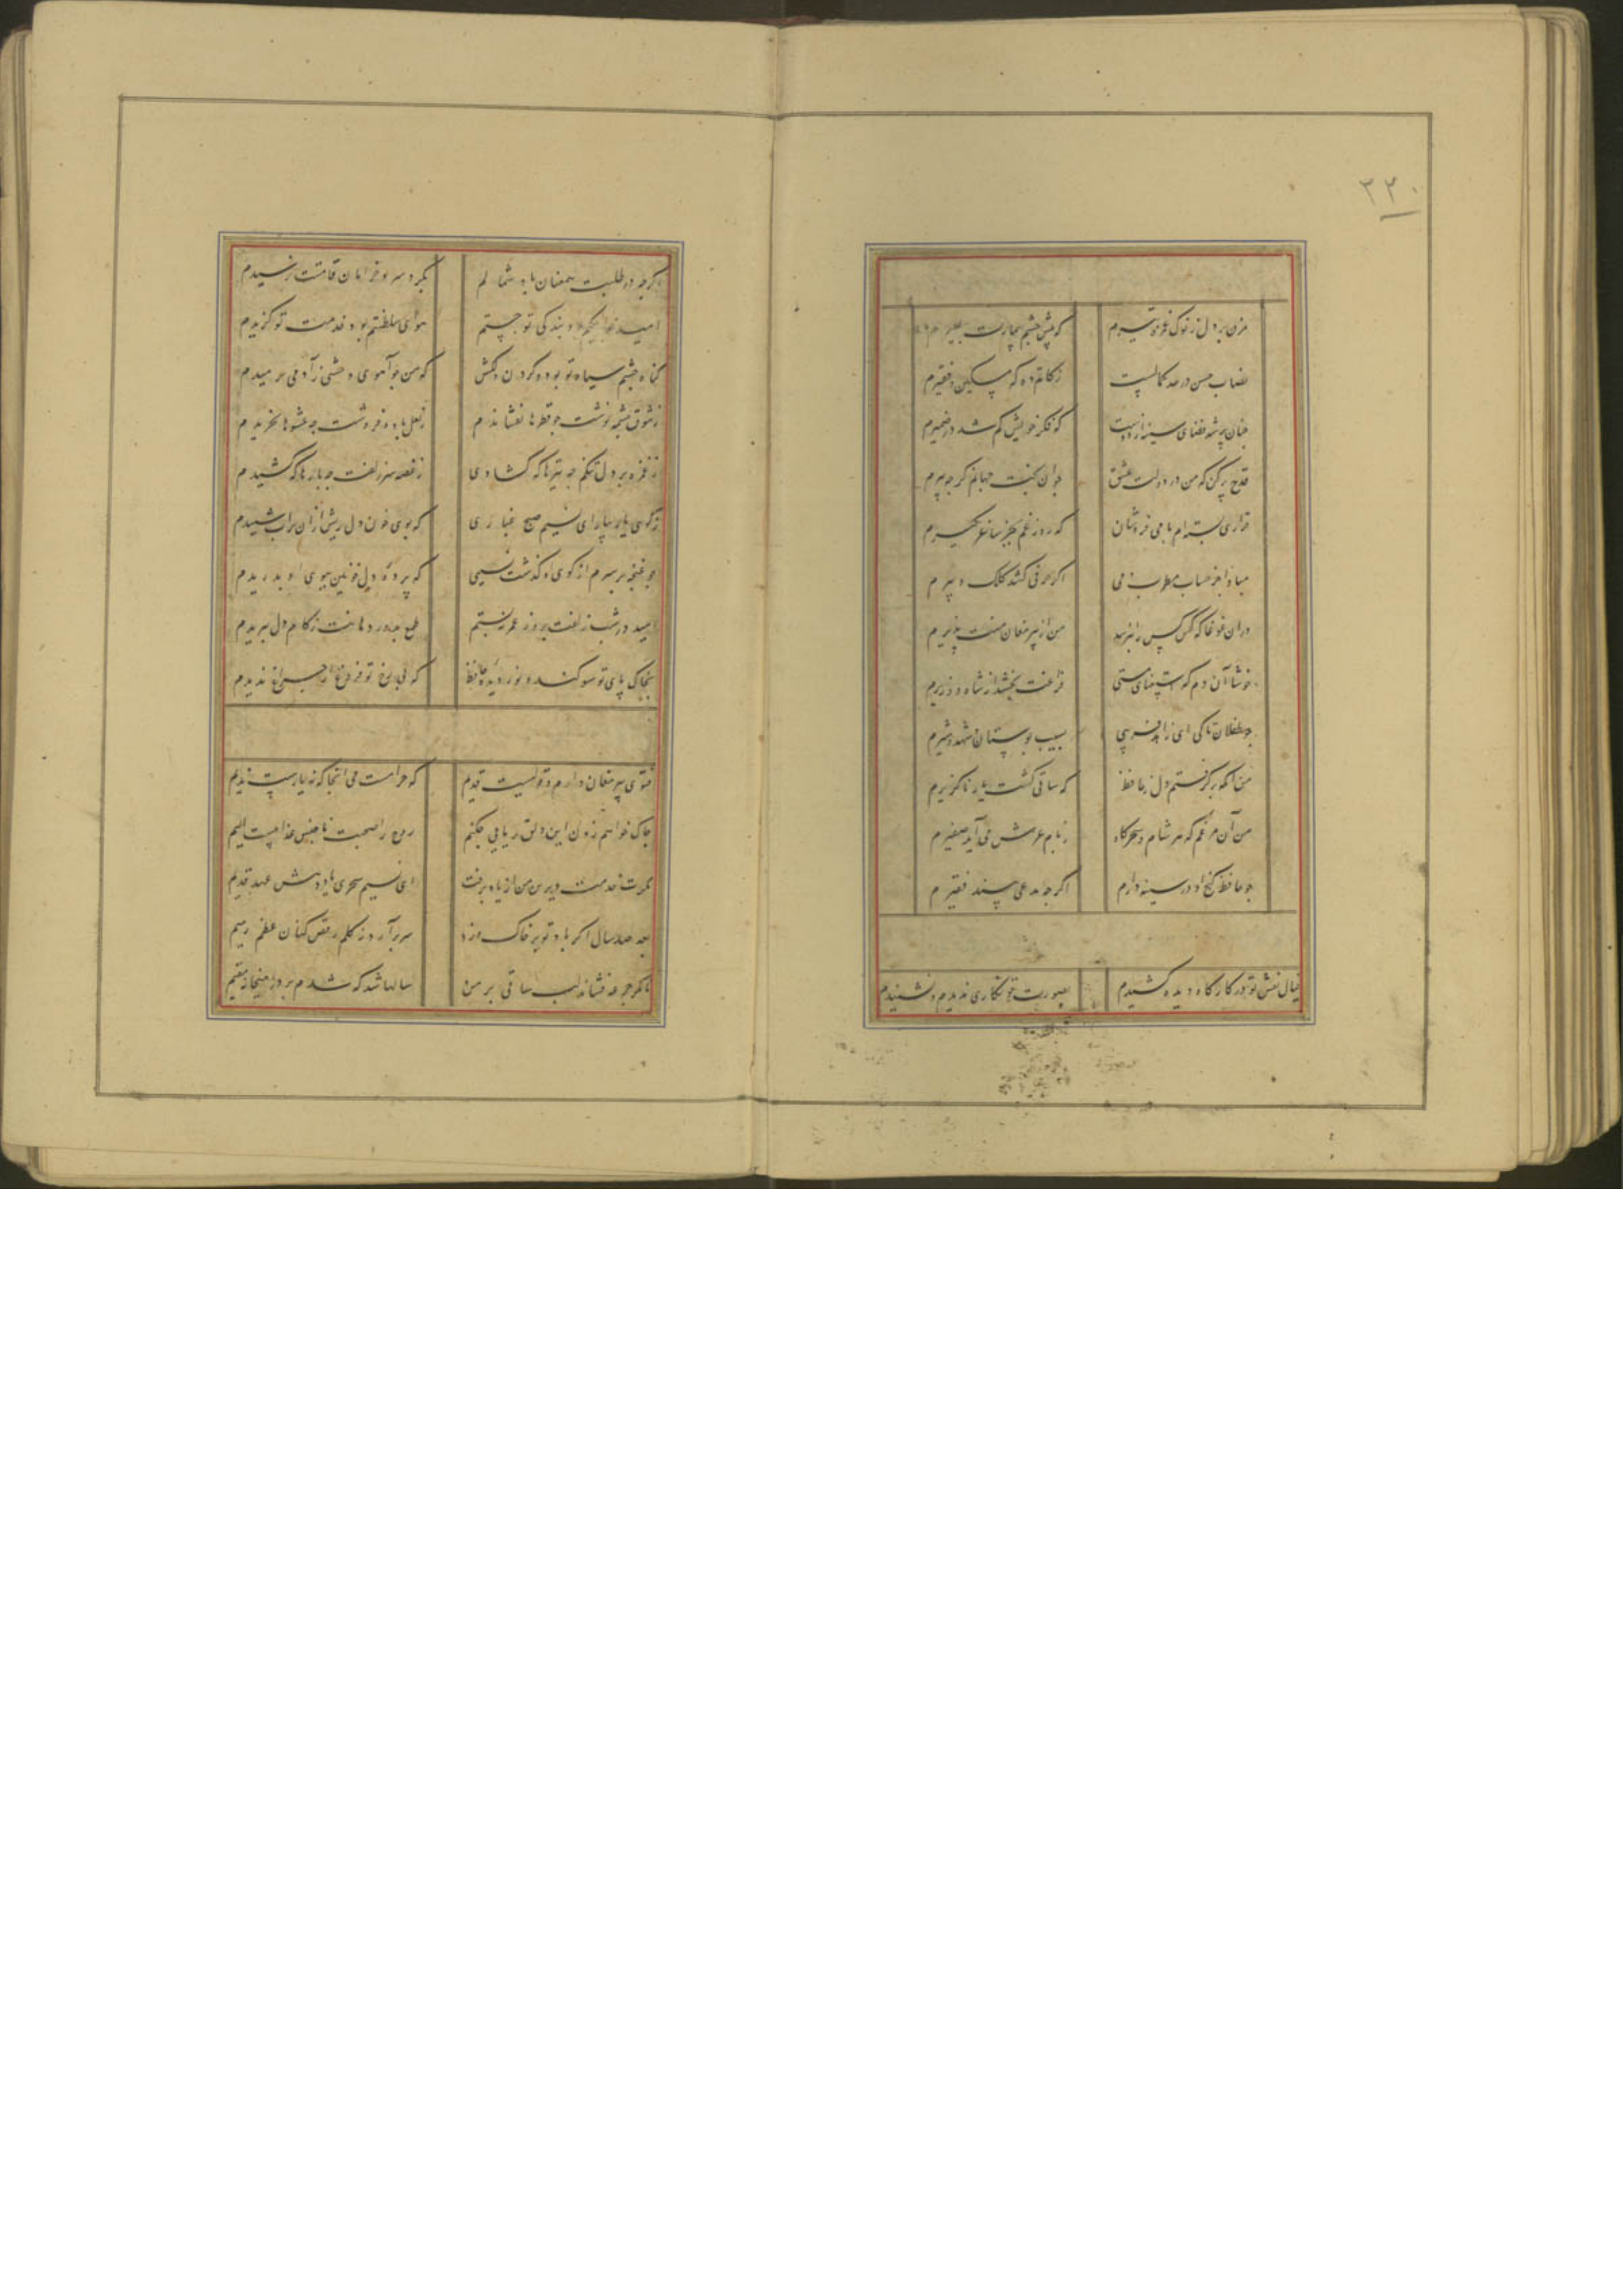 ۳۳۰
مزن بر دل ز نوک غمزه تیرم که پیش چشم بیمارت بمیرم
نصاب حسن در حد کمالست زکاتم ده که مسکین و فقیرم
چنان پر شد فضای سینه از دوست که فکر خویش کم شد در ضمیرم
قدح پر کن که من در دولت عشق جوان بخت جهانم کر چه پیرم
قراری بسته ام با می فروشان که روز غم بجز ساغر نکیرم
مبادا جز حساب مطرب و می اگر حرفی کشد کلک دبیرم
دران غوغا که کس کس را نپرسد من از پیر مغان منت پذیرم
خوشا آن دم که استغنای مستی فراغت بخشد از شاه و وزیرم
چو طفلان تا کی ای زاهد فریبی بسیب بوستان و شهد و شیرم
من آنکه بر کرفتم دل ز حافظ که ساقی کشت یار ناکزیرم
من آن مرغم که هر شام و سحرکاه ز بام عرش می آید صفیرم
چو حافظ کنج او در سینه دارم اگر چه مدعی بیند فقیرم
خیال نقش تو در کارگاه دیده کشیدم بصورت تو نکاری ندیدم و نشنیدم
اگر چه در طلبت همعنان باد شمالم بکرد سرو خرامان قامتت نرسیدم
امید خواجکیم بود بندکی تو جستم هوای سلطنتم بود خدمت تو کزیدم
کناه چشم سیاه تو بود و کردن دلکش که من چو آهوی وحشی ز آدمی برمیدم
ز شوق چشمه نوشت چو قطرها نفشاندم ز لعل باده فروشت چه عشوها نخریدم
ز غمزه بر دل تنکم چه تیرها که کشادی ز غصه سر زلفت چه بارها که کشیدم
ز کوی یار بیار ای نسیم صبح غباری که بوی خون دل ریش از آن تراب شنیدم
چو غنچه بر سرم از کوی او کذشت نسیمی که پرده دل خونین ببوی او بدریدم
امید در شب زلفت بروز عمر نبستم طمع بدور دهانت ز کام دل ببریدم
بخاک پای تو سوکند و نور دیده حافظ که بی رخ تو فروغ از چراغ ندیدم
فتوی پیر مغان دارم و قولیست قدیم که حرامست می انجا که نه یارست ندیم
چاک خواهم زدن این دلق ریایی چکنم روح را صحبت ناجنس عذابیست الیم
مکرت خدمت دیرین من از یاد برفت ای نسیم سحری یاد دهش عهد قدیم
بعد صد سال اکر باد تو بر خاک وزد سر برآرد ز کلم رقص کنان عظم رمیم
تا مکر جرعه فشاند لب ساقی بر من سالها شد که شدم بر در میخانه مقیم